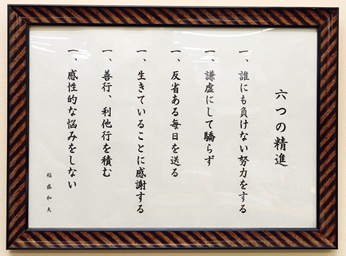 六つの精進
一、誰にも負けない努力をする
一、謙虚にして驕らず
一、反省ある毎日を送る
一、生きていることに感謝する
一、善行、利他行を積む
一、感性的な悩みをしない
稲盛和夫